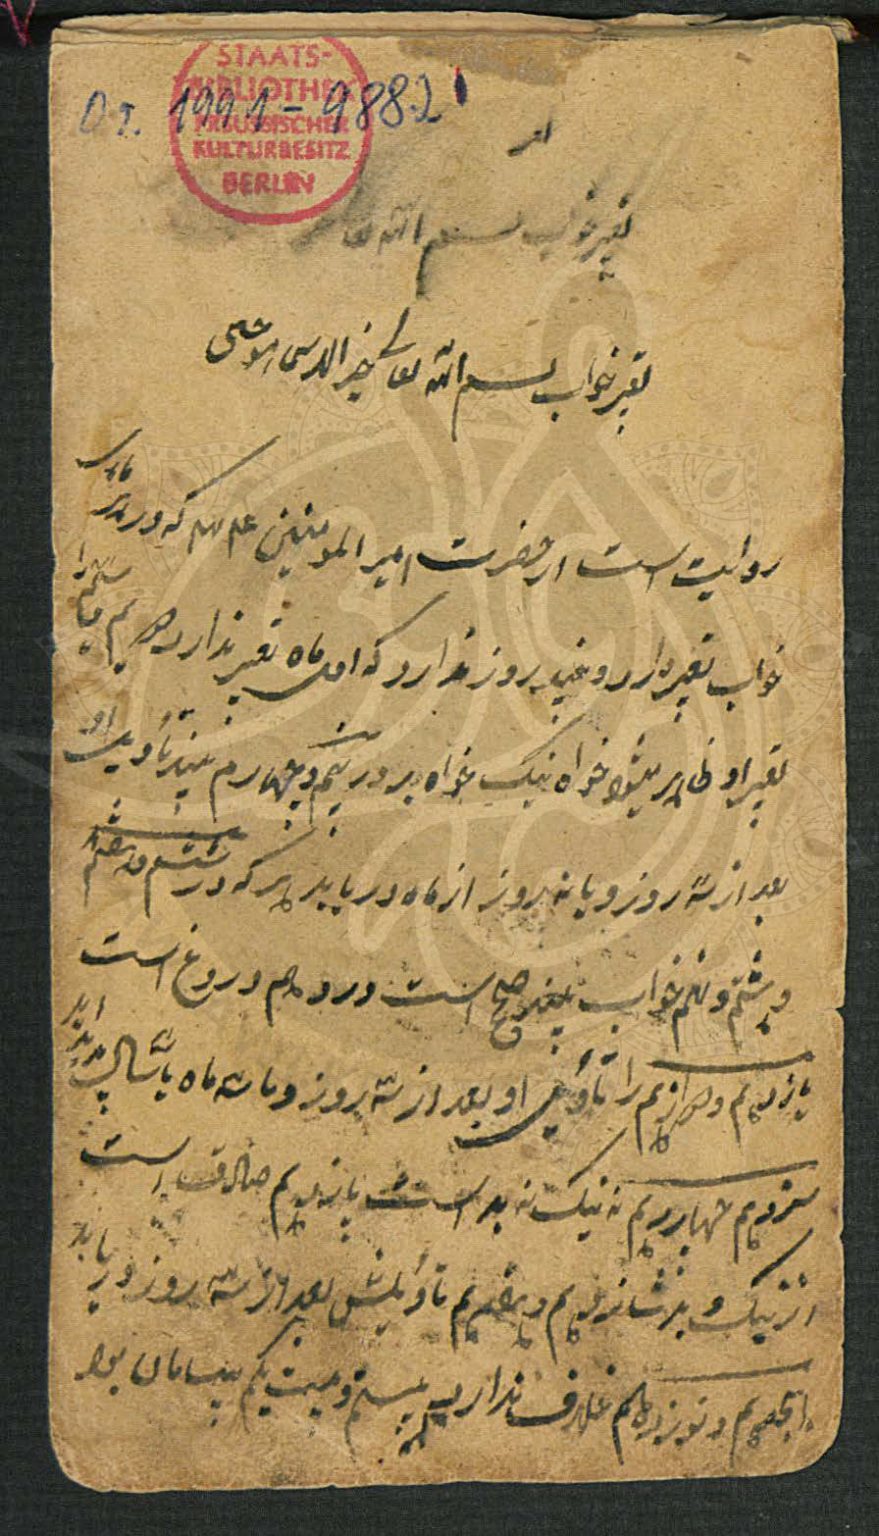 STAATS-
BIBLIOTHEK
PREUSSISCHER
KULTURBESITZ
BERLIN
Or. 1991-9882
تعبیر خواب بسم الله
تعبیر خواب بسم الله تعالی خیر
روایت است از حضرت امیر المومنین که در
خواب تعبیر دارد و روز ندارد که اول ماه تعبیر ندارد
تعبیر او ظاهر میشود خواه نیک خواه بد در سیم و چهارم تاویل او
بعد از سه روز و یا نه روز از ماه در یابد هر که در ششم و هفتم
و هشتم و نهم خواب بیند صحیح است در دهم دروغ است
یازدهم و دوازدهم را تاویل او بعد از سه روز و یا سه ماه یا سال
سیزدهم چهاردهم نه نیک نه بد است پانزدهم صادق است
از نیک و بد شانزدهم و هفدهم تاویلش بعد از سه روز در یابد
هجدهم و نوزدهم خلاف ندارد بیستم و بیست یکم بود